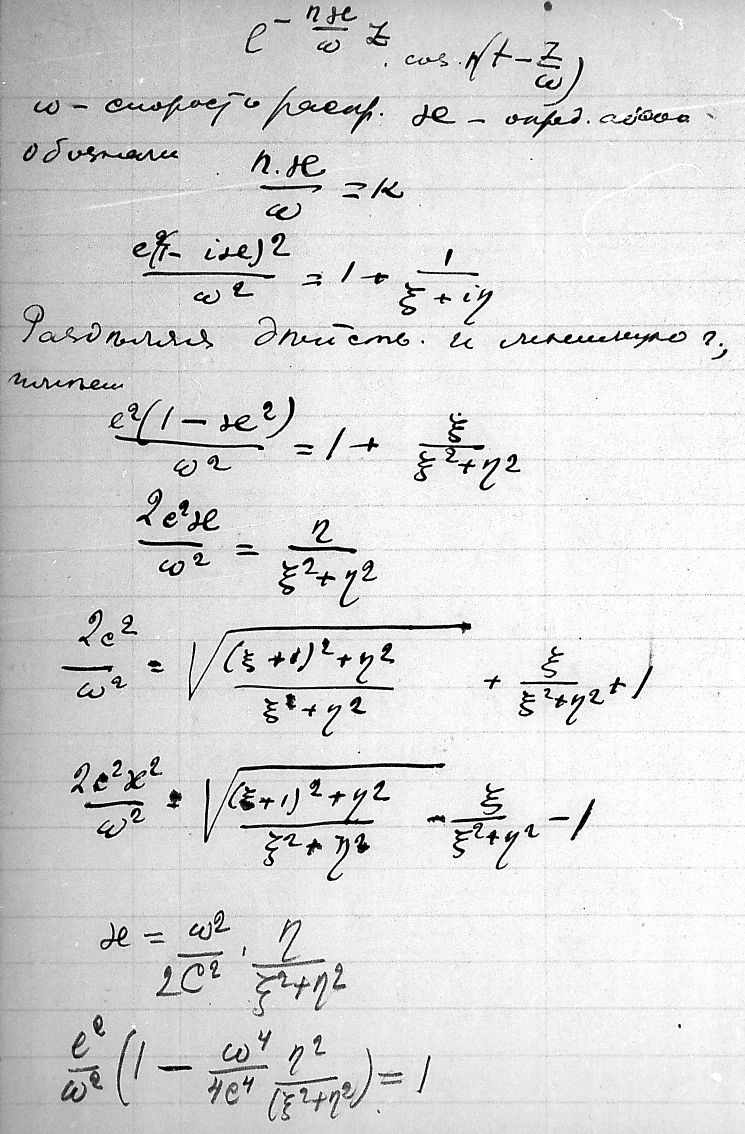 e^{-\frac{nϰ}{ω} z} . cos. n(t - \frac{z}{ω})
ω - скорость распр. ϰ - опред.
обозначая
\frac{n.ϰ}{ω} = K
\frac{c^2(1 - iϰ)^2}{ω^2} = 1 + \frac{1}{ξ + iη}
Раздѣляя дѣйств. и мнимую ч.,
\frac{c^2(1 - ϰ^2)}{ω^2} = 1 + \frac{ξ}{ξ^2 + η^2}
\frac{2c^2ϰ}{ω^2} = \frac{η}{ξ^2 + η^2}
\frac{2c^2}{ω^2} = \sqrt{\frac{(ξ + 1)^2 + η^2}{ξ^2 + η^2}} + \frac{ξ}{ξ^2 + η^2} + 1
\frac{2c^2ϰ^2}{ω^2} = \sqrt{\frac{(ξ + 1)^2 + η^2}{ξ^2 + η^2}} - \frac{ξ}{ξ^2 + η^2} - 1
ϰ = \frac{ω^2}{2C^2} . \frac{η}{ξ^2 + η^2}
\frac{c^2}{ω^2} (1 - \frac{ω^4}{4c^4} \frac{η^2}{(ξ^2 + η^2)}) = 1